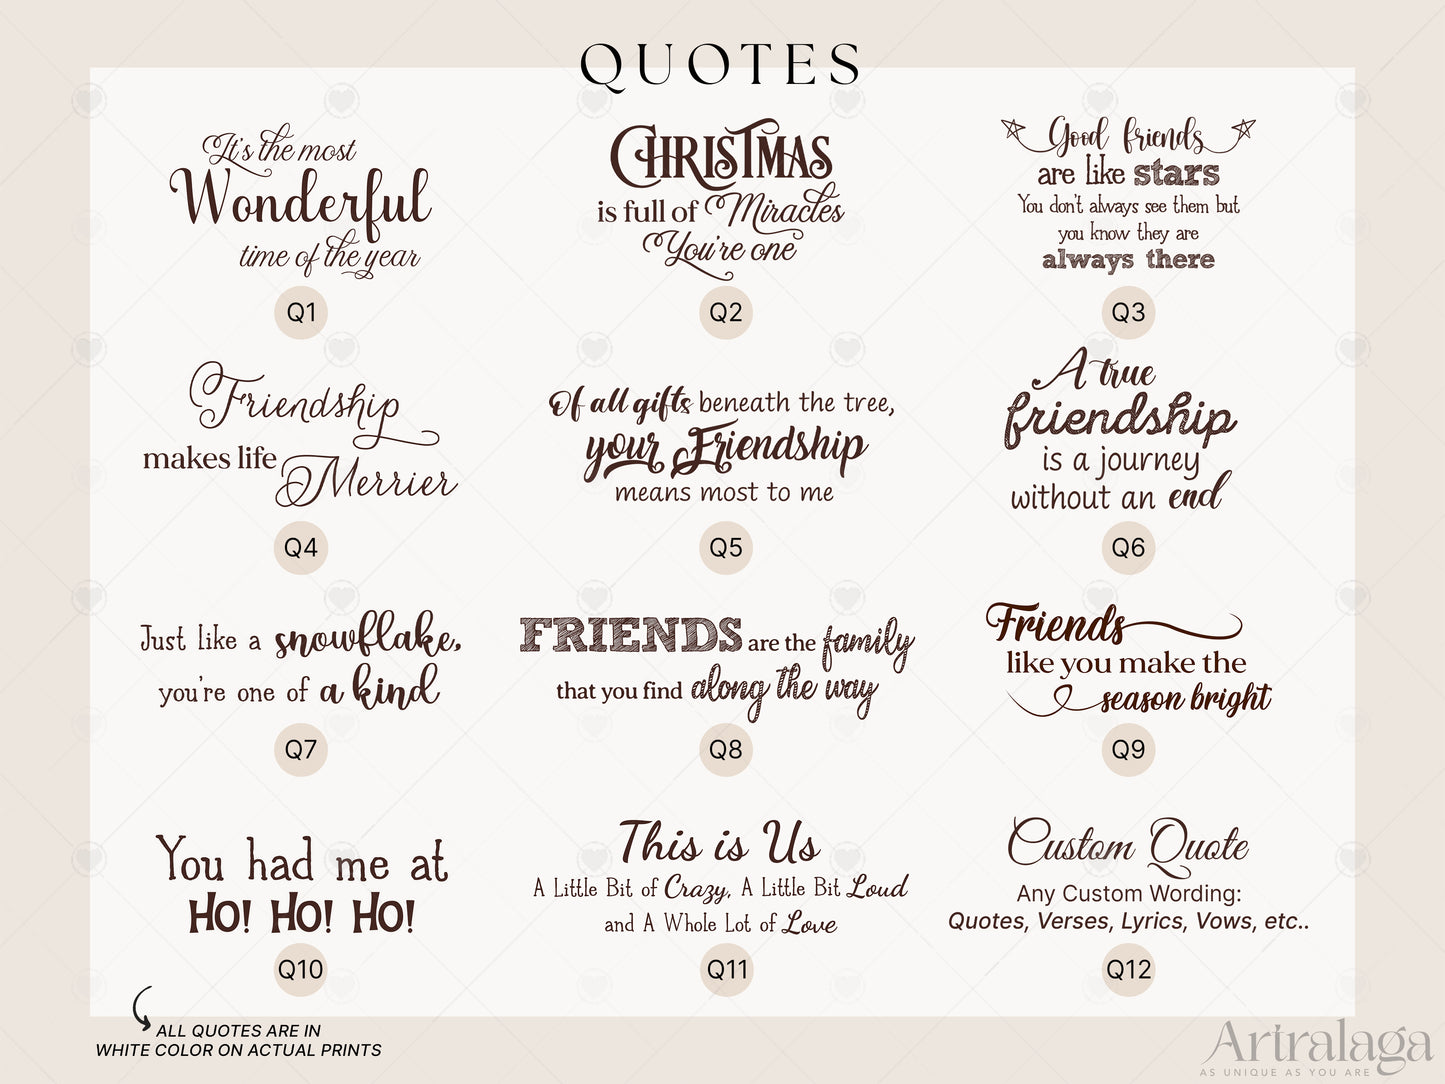 QUOTES
It's the most
Wonderful
time of the year
Q1
CHRISTMAS
is full of Miracles
You're one
Q2
Good friends
are like stars
You don't always see them but
you know they are
always there
Q3
Friendship
makes life
Merrier
Q4
Of all gifts beneath the tree,
your Friendship
means most to me
Q5
A true
friendship
is a journey
without an end
Q6
Just like a snowflake,
you're one of a kind
Q7
FRIENDS are the family
that you find along the way
Q8
Friends
like you make the
season bright
Q9
You had me at
Ho! Ho! Ho!
Q10
This is Us
A Little Bit of Crazy, A Little Bit Loud
and A Whole Lot of Love
Q11
Custom Quote
Any Custom Wording:
Quotes, Verses, Lyrics, Vows, etc..
Q12
ALL QUOTES ARE IN
WHITE COLOR ON ACTUAL PRINTS
Artralaga
AS UNIQUE AS YOU ARE